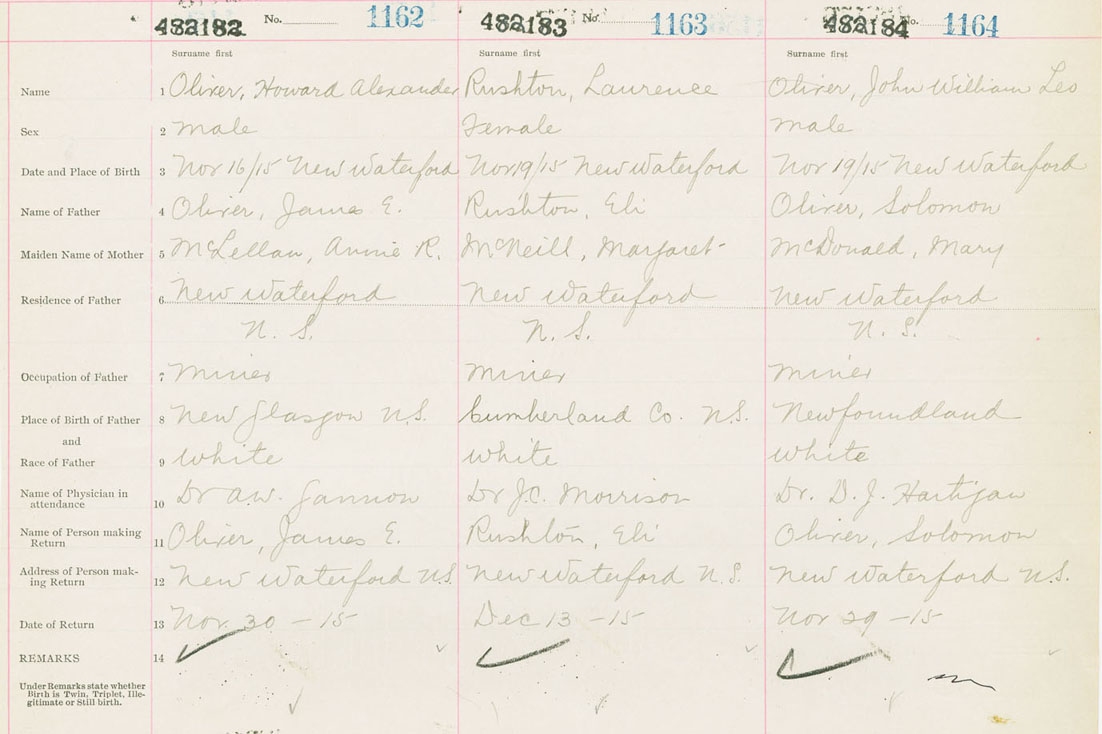 482182 No. 1162 482183 No. 1163 482184 No. 1164
Surname first Surname first Surname first
Name 1 Oliver, Howard Alexander Rushton, Laurence Oliver, John William Leo
Sex 2 male Female male
Date and Place of Birth 3 Nov 16/15 New Waterford Nov 19/15 New Waterford Nov 19/15 New Waterford
Name of Father 4 Oliver, James E. Rushton, Eli Oliver, Solomon
Maiden Name of Mother 5 McLellan, Annie R. McNeill, Margaret McDonald, Mary
Residence of Father 6 New Waterford New Waterford New Waterford
N. S. N. S. N. S.
Occupation of Father 7 Miner Miner Miner
Place of Birth of Father 8 New Glasgow N.S. Cumberland Co. N.S. Newfoundland
and
Race of Father 9 White White White
Name of Physician in
attendance 10 Dr A.W. Gannon Dr J.C. Morrison Dr. D. J. Hartigan
Name of Person making
Return 11 Oliver, James E. Rushton, Eli Oliver, Solomon
Address of Person mak-
ing Return 12 New Waterford N.S. New Waterford N.S. New Waterford N.S.
Date of Return 13 Nov. 30 - 15 Dec 13 - 15 Nov 29 - 15
REMARKS 14
Under Remarks state whether
Birth is Twin, Triplet, Ille-
gitimate or Still birth.